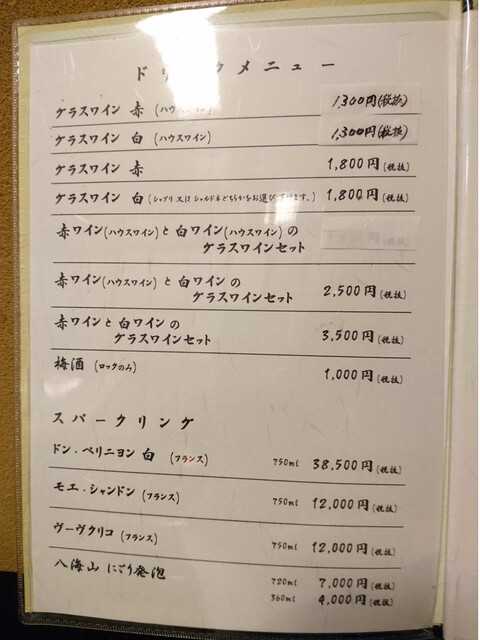 ドリンクメニュー
グラスワイン 赤 (ハウスワイン) 1,300円(税抜)
グラスワイン 白 (ハウスワイン) 1,300円(税抜)
グラスワイン 赤 1,800円(税抜)
グラスワイン 白 (シャブリ又はシャルドネどちらかをお選び頂けます。) 1,800円(税抜)
赤ワイン(ハウスワイン)と白ワイン(ハウスワイン)の
グラスワインセット 円(税抜)
赤ワイン(ハウスワイン)と白ワインの
グラスワインセット 2,500円(税抜)
赤ワインと白ワインの
グラスワインセット 3,500円(税抜)
梅酒 (ロックのみ) 1,000円(税抜)
スパークリング
ドン・ペリニヨン 白 (フランス) 750ml 38,500円(税抜)
モエ・シャンドン (フランス) 750ml 12,000円(税抜)
ヴーヴクリコ (フランス) 750ml 12,000円(税抜)
八海山 にごり発泡 720ml 7,000円(税抜)
360ml 4,000円(税抜)